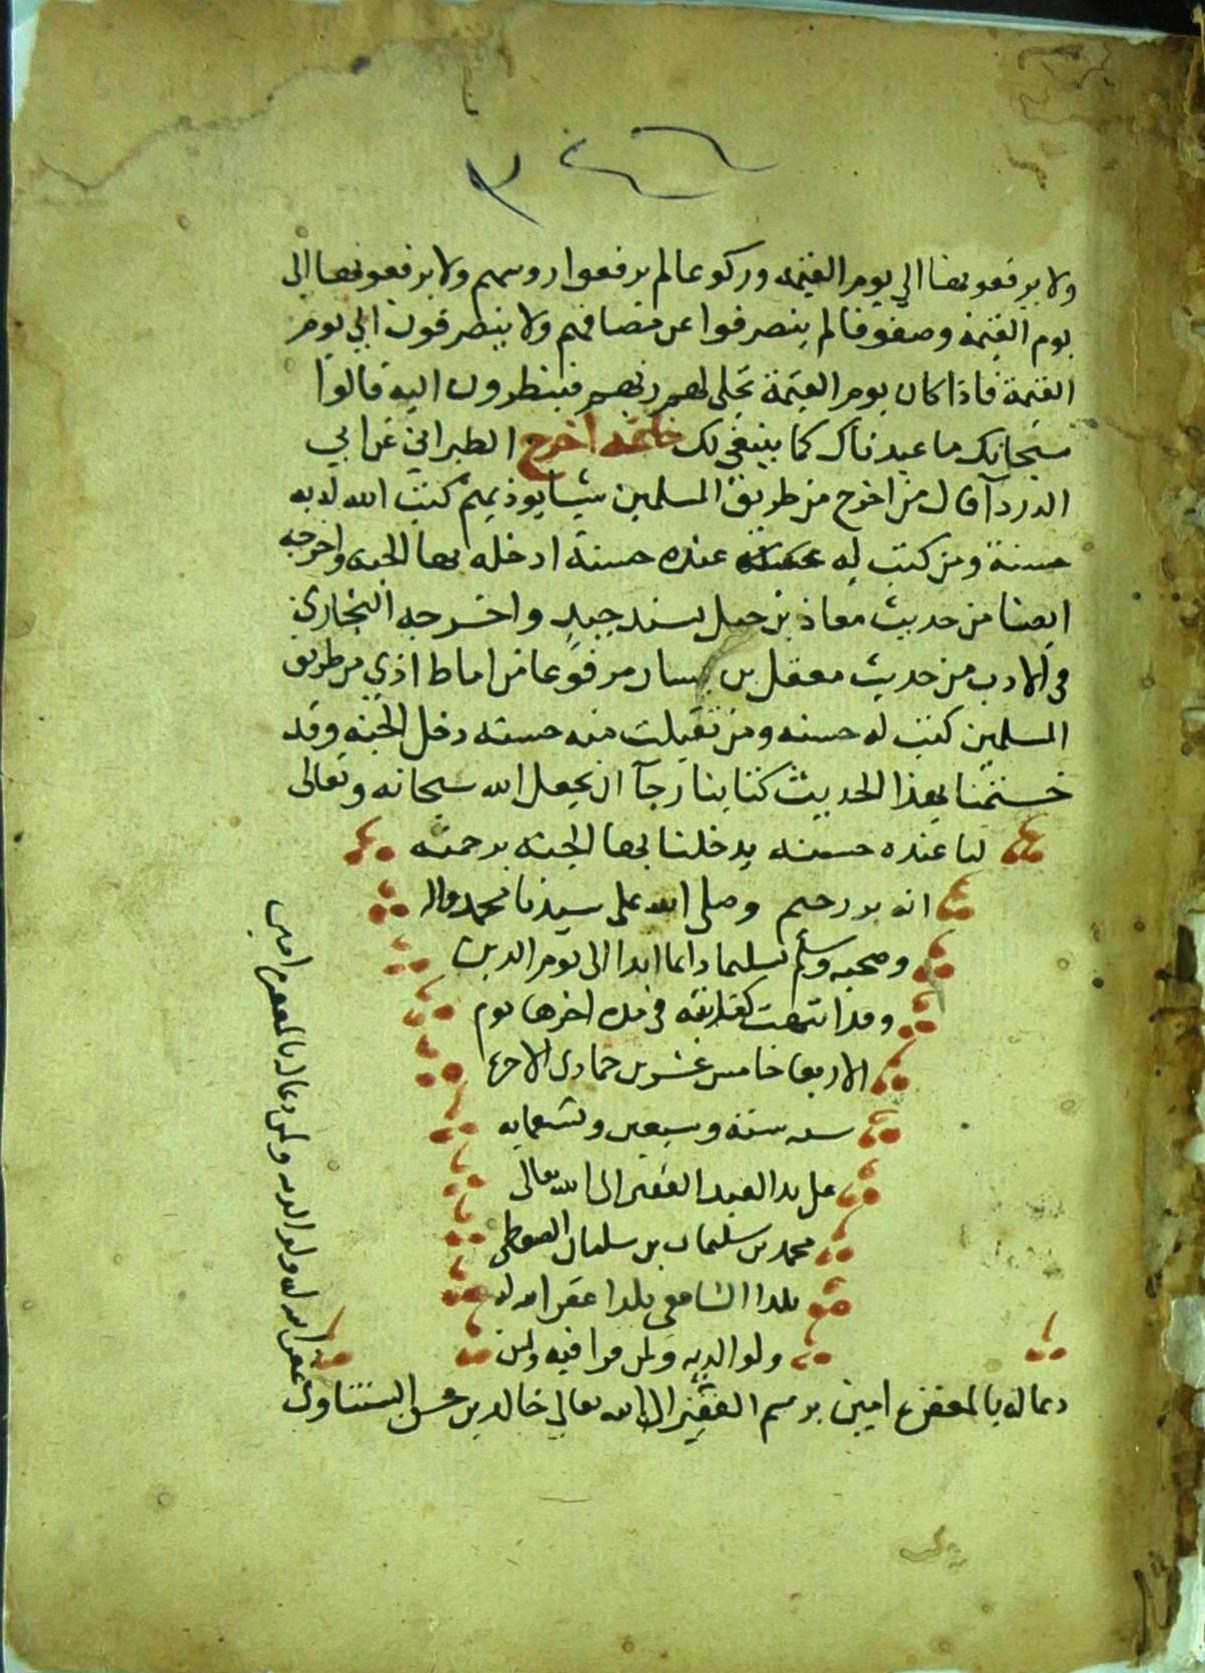 ولا يرفعونها الي يوم القيمة وركوعا لم يرفعوا روسهم ولا يرفعونها الى
يوم القيمة وصفوفا لم ينصرفوا عن مصافهم ولا ينصرفون الي يوم
القيمة فاذا كان يوم القيمة تجلى لهم ربهم فينظرون اليه قالوا
سبحانك ما عبدناك كما ينبغي لك خاتمه اخرج الطبراني عن ابي
الدردآ قال من اخرج من طريق المسلمين شيا يوذيهم كتب الله له به
حسنة ومن كتب له عنده حسنة ادخله بها الجنه واخرجه
ايضا من حديث معاذ بن جبل بسند جيد واخرجه البخاري
في الادب من حديث معقل بن يسار مرفوعا من اماط اذي من طريق
المسلمين كتب له حسنه ومن تقبلت منه حسنه دخل الجنه وقد
ختمنا بهذا الحديث كتابنا رجآ ان يجعل الله سبحانه وتعالى
لنا عنده حسنه يدخلنا بها الجنه برحمته
انه بر رحيم وصلى الله على سيدنا محمد واله
وصحبه وسلم تسليما دائما ابدا الى يوم الدين
وقد انتهت كتابته في مده اخرها يوم
الاربعا خامس عشرين جمادى الاخره
سنه ستة وسبعين وتسعمايه
على يد العبد الفقير الى الله تعالى
محمد بن سليمان بن سليمان
بلدا الشافعي عفر الله له
ولوالديه ولمن قرا فيه ولمن
دعا له بالمغفرة امين برسم الفقير الى الله تعالى خالد بن حسن
غفر الله له ولوالديه ولمن دعا له بالمغفره امين